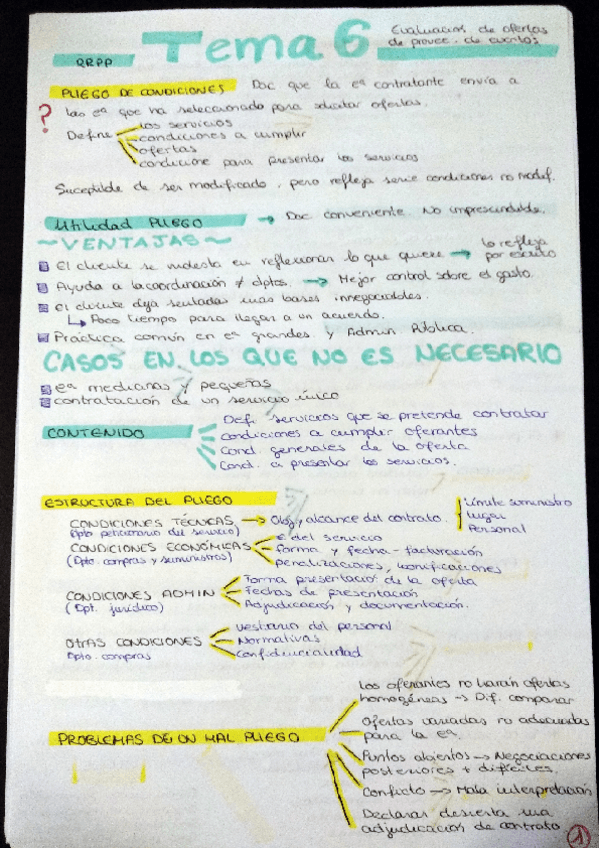 RRPP
Tema 6
Evaluación de ofertas
de provee. de eventos
PLIEGO DE CONDICIONES Doc que la eª contratante envía a
las eª que ha seleccionado para solicitar ofertas.
?
Define
los servicios
condiciones a cumplir
ofertas
condicione para presentar los servicios
Suceptible de ser modificado, pero refleja serie condiciones no modif.
Utilidad PLIEGO → Doc conveniente. No imprescindible.
~VENTAJAS~
El cliente se molesta en reflexionar lo que quiere → lo refleja
por escrito
Ayuda a la coordinación ≠ dptos. → Mejor control sobre el gasto.
El cliente deja sentadas unas bases innegociables.
↳ Poco tiempo para llegar a un acuerdo.
Práctica común en eª grandes y Admin Pública.
CASOS EN LOS QUE NO ES NECESARIO
eª medianas y pequeñas
contratación de un servicio único
CONTENIDO
Def. servicios que se pretende contratar
condiciones a cumplir oferantes
Cond. generales de la oferta
Cond. a presentar los servicios.
ESTRUCTURA DEL PLIEGO
CONDICIONES TÉCNICAS → Obj. y alcance del contrato.
(Dpto peticionario del servicio)
Límite suministro
lugar
Personal
CONDICIONES ECONÓMICAS
(Dpto. compras y suministros)
€ del servicio
forma y fecha - facturación
Penalizaciones, bonificaciones
CONDICIONES ADMIN
(Dpt. jurídico)
Forma presentació de la oferta
Fechas de presentación
Adjudicación y documentación.
OTRAS CONDICIONES
Dpto. compras
Vestuario del personal
Normativas
Confidencialidad
PROBLEMAS DE UN MAL PLIEGO
Los oferantes no harán ofertas
homogéneas → Dif. comparar
Ofertas variadas no adecuadas
para la eª.
Puntos abiertos → Negociaciones
posteriores + difíciles.
Conflicto → Mala interpretación
Declarar desierta una
adjudicación de contrato
1